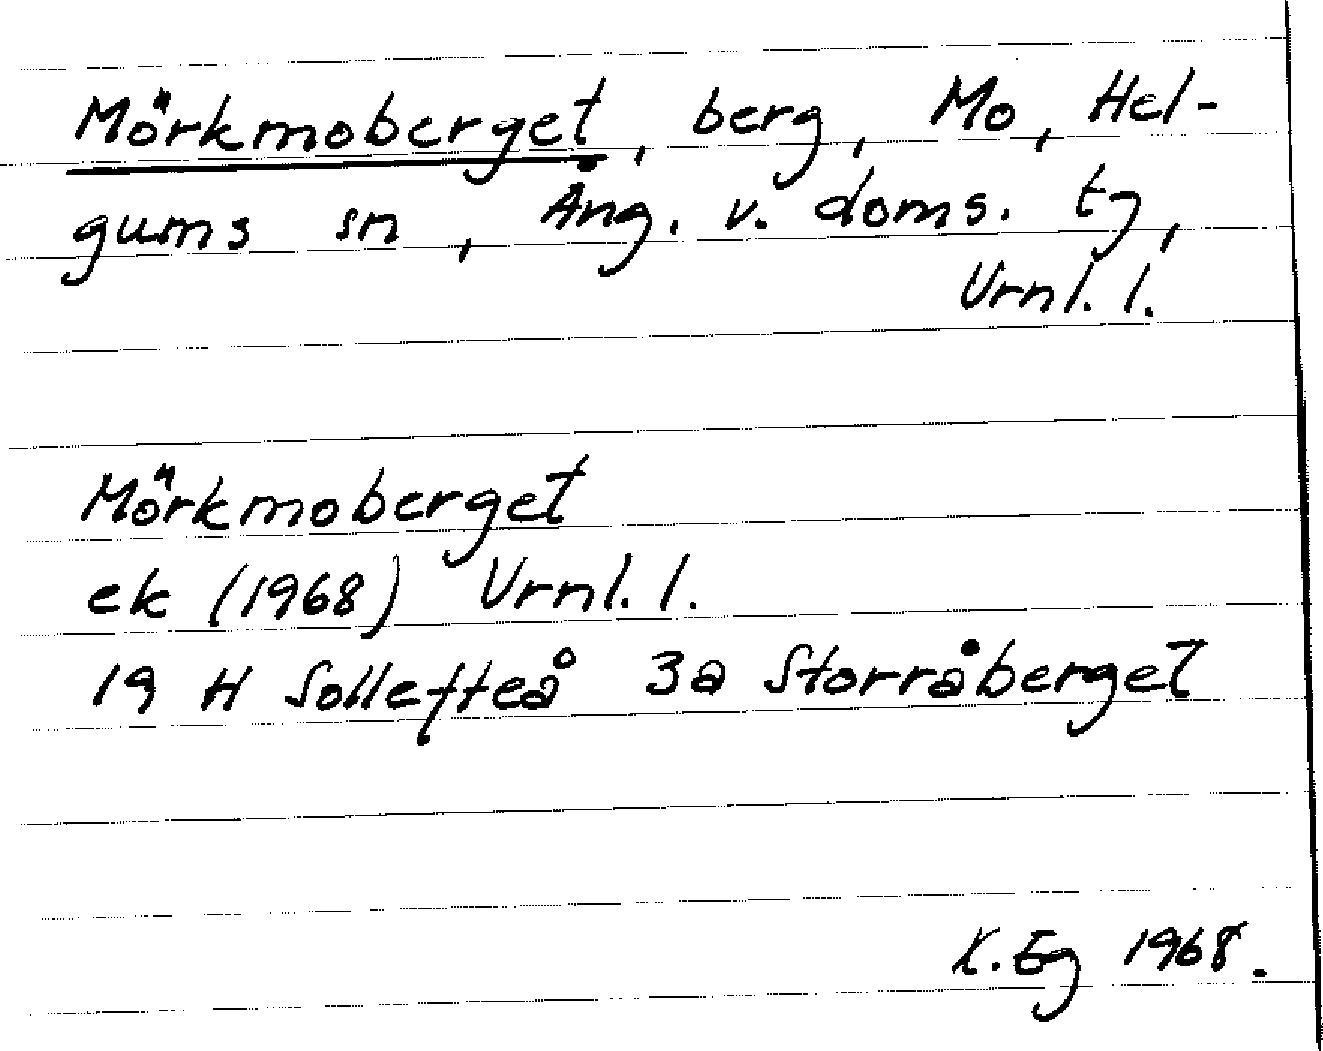 Mörkmoberget, berg, Mo, Hel-
gums sn, Ång. v. doms. tg,
Vrnl. l.
Mörkmoberget
ek (1968) Vrnl. l.
19 H Sollefteå 3a Storråberget
K. Eg 1968.